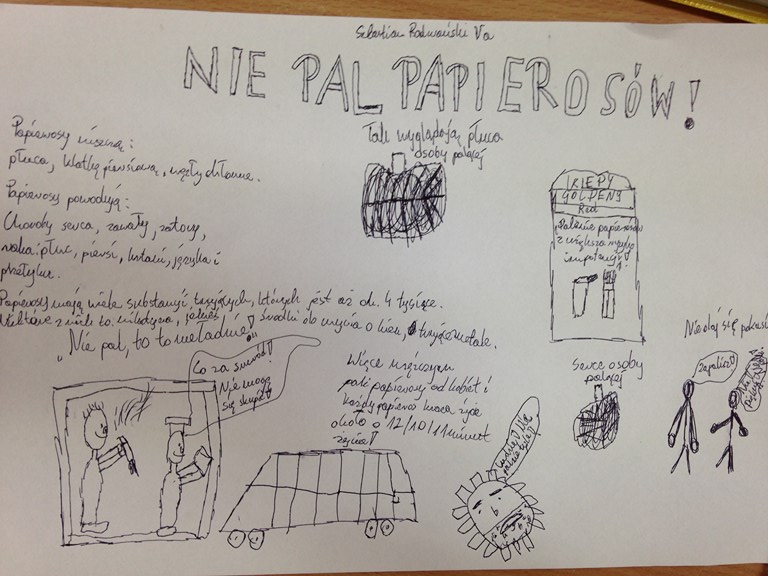 Sebastian Radwański Va
NIE PAL PAPIEROSÓW!
Papierosy niszczą:
płuca, klatkę piersiową, węzły chłonne.
Papierosy powodują:
Choroby serca, zawały, zatory,
raka: płuc, piersi, krtani, języka i
przełyku.
Papierosy mają wiele substancji trujących, których jest aż ok. 4 tysiące.
Niektóre z nich to: nikotyna, środki do mycia okien, trujące metale.
"Nie pal, to to nieładnie!"
Tak wyglądają płuca
osoby palącej
KIEPY
GOLDENY
Red
Palenie papierosów
z większa ryzyko
impotencji
Co za smród!
Nie mogę
się skupić!
Więcej mężczyzn
pali papierosy od kobiet i
każdy papieros skraca życie
około o 12/10/11 minut
życia!
Serce osoby
palącej
Nie daj się
zapalisz?